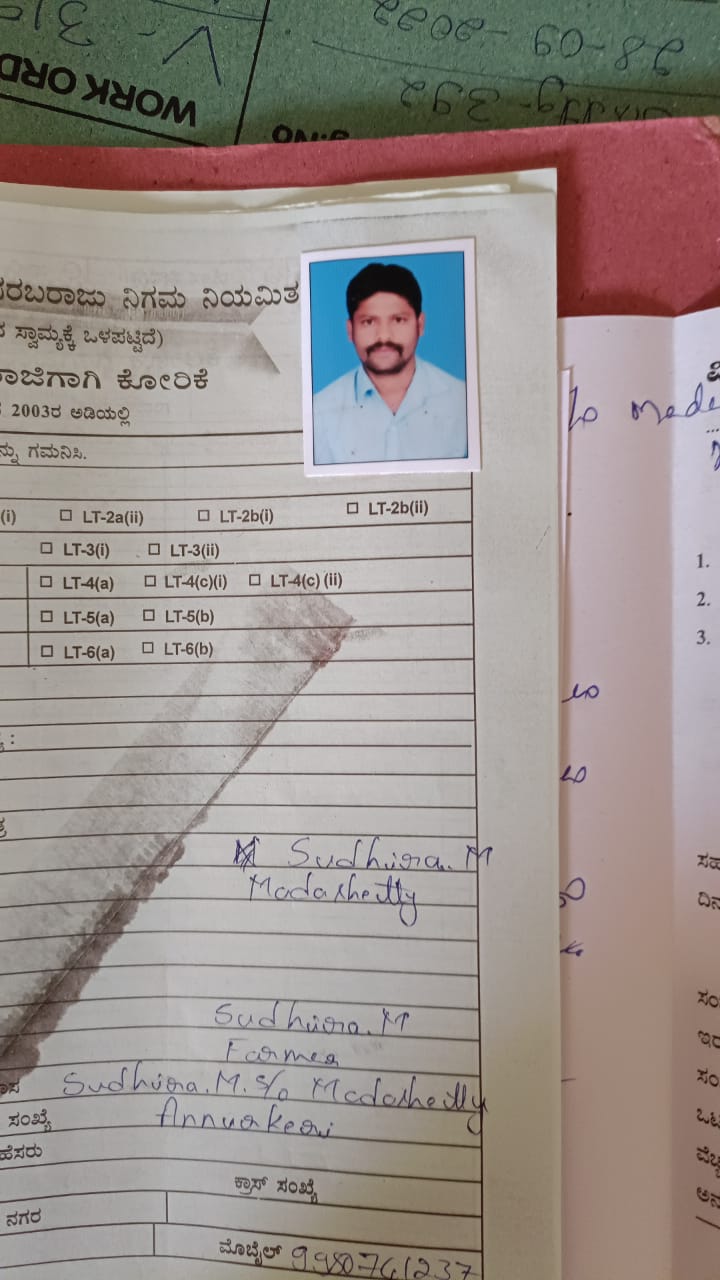 28-09-2022
392
WORK ORD
S.NO
ಸರಬರಾಜು ನಿಗಮ ನಿಯಮಿತ
ಸ್ವಾಮ್ಯಕ್ಕೆ ಒಳಪಟ್ಟಿದೆ)
ಕೋರಿಕೆ
2003ರ ಅಡಿಯಲ್ಲಿ
ಗಮನಿಸಿ.
(i) □ LT-2a(ii) □ LT-2b(i) □ LT-2b(ii)
□ LT-3(i) □ LT-3(ii)
□ LT-4(a) □ LT-4(c)(i) □ LT-4(c) (ii)
□ LT-5(a) □ LT-5(b)
□ LT-6(a) □ LT-6(b)
Sudhira. M
Madashetty
Sudhira. M
Farmer
Sudhira. M. S/o Madashetty
ಸಂಖ್ಯೆ Annurkeri
ಹೆಸರು
ಕ್ರಾಸ್ ಸಂಖ್ಯೆ
ನಗರ
ಮೊಬೈಲ್ 9980741237
1.
2.
3.